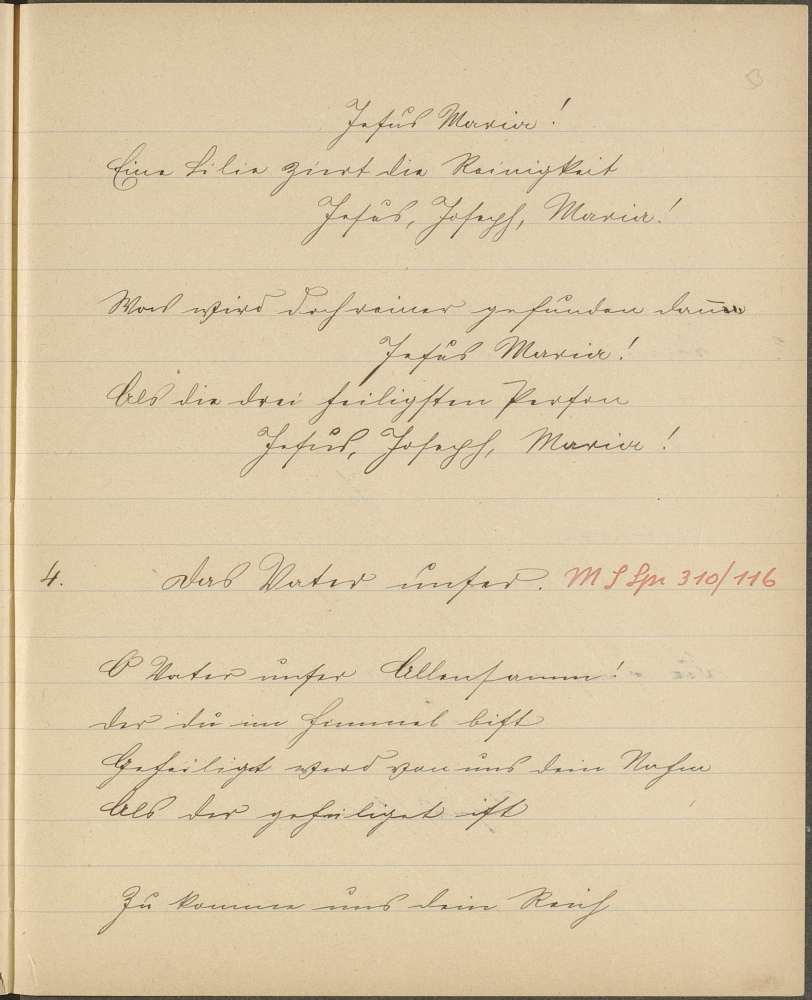 Jesus Maria!
Eine Lilie ziert die Reinigkeit
Jesus, Joseph, Maria!
Was wird doch reiner gefunden dann
Jesus Maria!
Als die drei heiligsten Person
Jesus, Joseph, Maria!
4. Das Vater unser. 310/116
O Vater unser Allensamm!
der du im Himmel bist
Geheiliget werd von uns dein Nahme
Als der geheiliget ist
Zu komme uns dein Reich